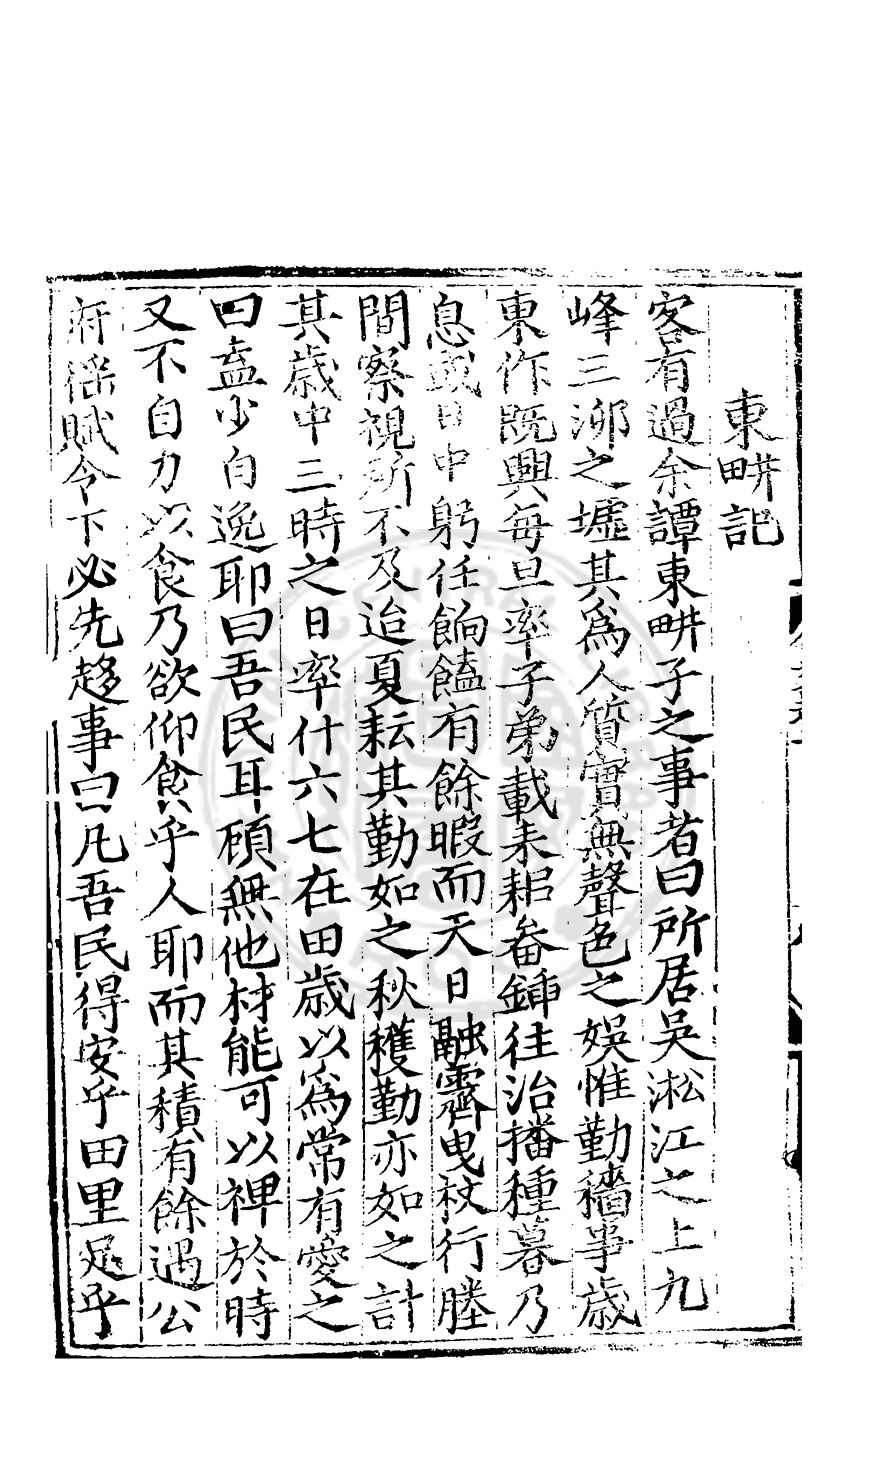 東畊記
客有過余譚東畊子之事者曰所居吳淞江之上九
峰三泖之墟其為人質實無聲色之娛惟勤穡事歲
東作既興每旦率子弟載耒耜畚鍤往治播種暮乃
息或日中躬任餉饁有餘暇而天日融霽曳杖行塍
間察視所不及迨夏耘其勤如之秋穫勤亦如之計
其歲中三時之日率什六七在田歲以為常有愛之
曰盍少自逸耶曰吾民耳顧無他材能可以裨於時
又不自力以食乃欲仰食乎人耶而其積有餘遇公
府徭賦令下必先趍事曰凡吾民得安乎田里足乎